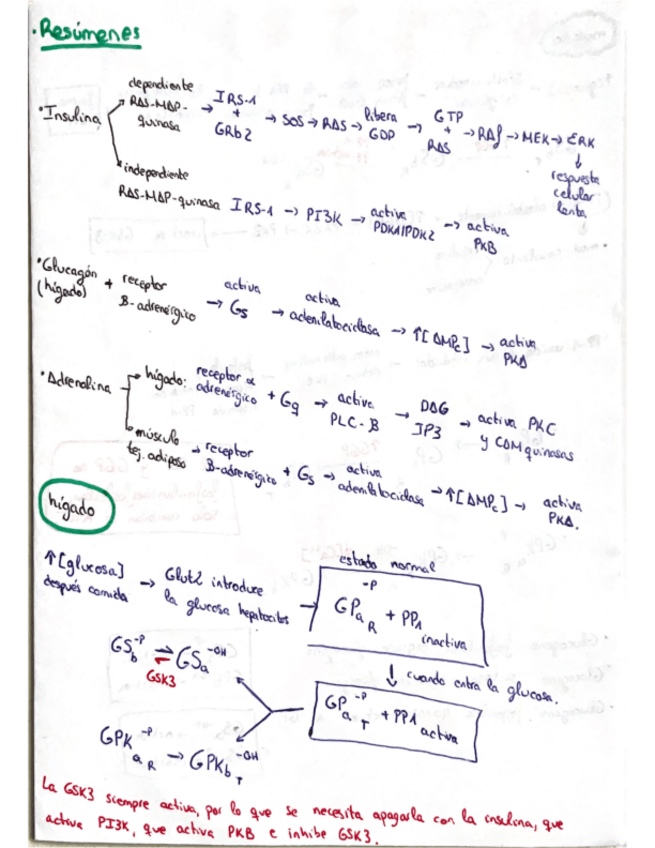 · Resúmenes
· Insulina
dependiente RAS-MAP-quinasa → IRS-1 + GRb2 → SOS → RAS → libera GDP → GTP + RAS → RAf → MEK → ERK ↓ respuesta celular lenta
independiente RAS-MAP-quinasa IRS-1 → PI3K → activa PDK1/PDK2 → activa PKB
· Glucagón (hígado) + receptor B-adrenérgico → activa Gs → activa adenilatociclasa → ↑[AMPc] → activa PKA
· Adrenalina
hígado: receptor α adrenérgico + Gq → activa PLC-B → DAG IP3 → activa PKC y CAM quinasas
músculo tej. adiposo → receptor B-adrenérgico + Gs → activa adenilatociclasa → ↑[AMPc] → activa PKA.
hígado
↑[glucosa] después comida → Glut2 introduce la glucosa hepatocitos →
estado normal
GPa R -P + PP1 inactiva
↓ cuando entra la glucosa.
GPa T -P + PP1 activa
GSb -P ⇌ GSa -OH
GSK3
GPKa R -P → GPKb T -OH
La GSK3 siempre activa, por lo que se necesita apagarla con la insulina, que
activa PI3K, que activa PKB e inhibe GSK3.